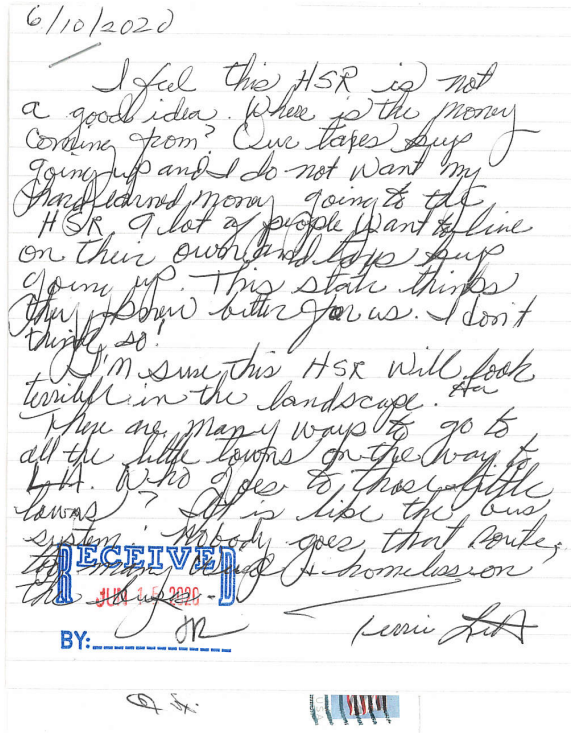 6/10/2020
I feel this HSR is not
a good idea. Where is the money
coming from? Our taxes keep
going up and I do not want my
hard earned money going to the
HSR A lot of people want to live
on their own and keep
going up. This state thinks
they know better for us. I don't
think so!
I'm sure this HSR will look
terrible in the landscape.
There are many ways to go to
all the little towns on the way to
LA. Who goes to those little
towns? It is like the bus
system. Nobody goes that route,
many drugs + homeless on
the
RECEIVED
JUN 15 2020
BY: